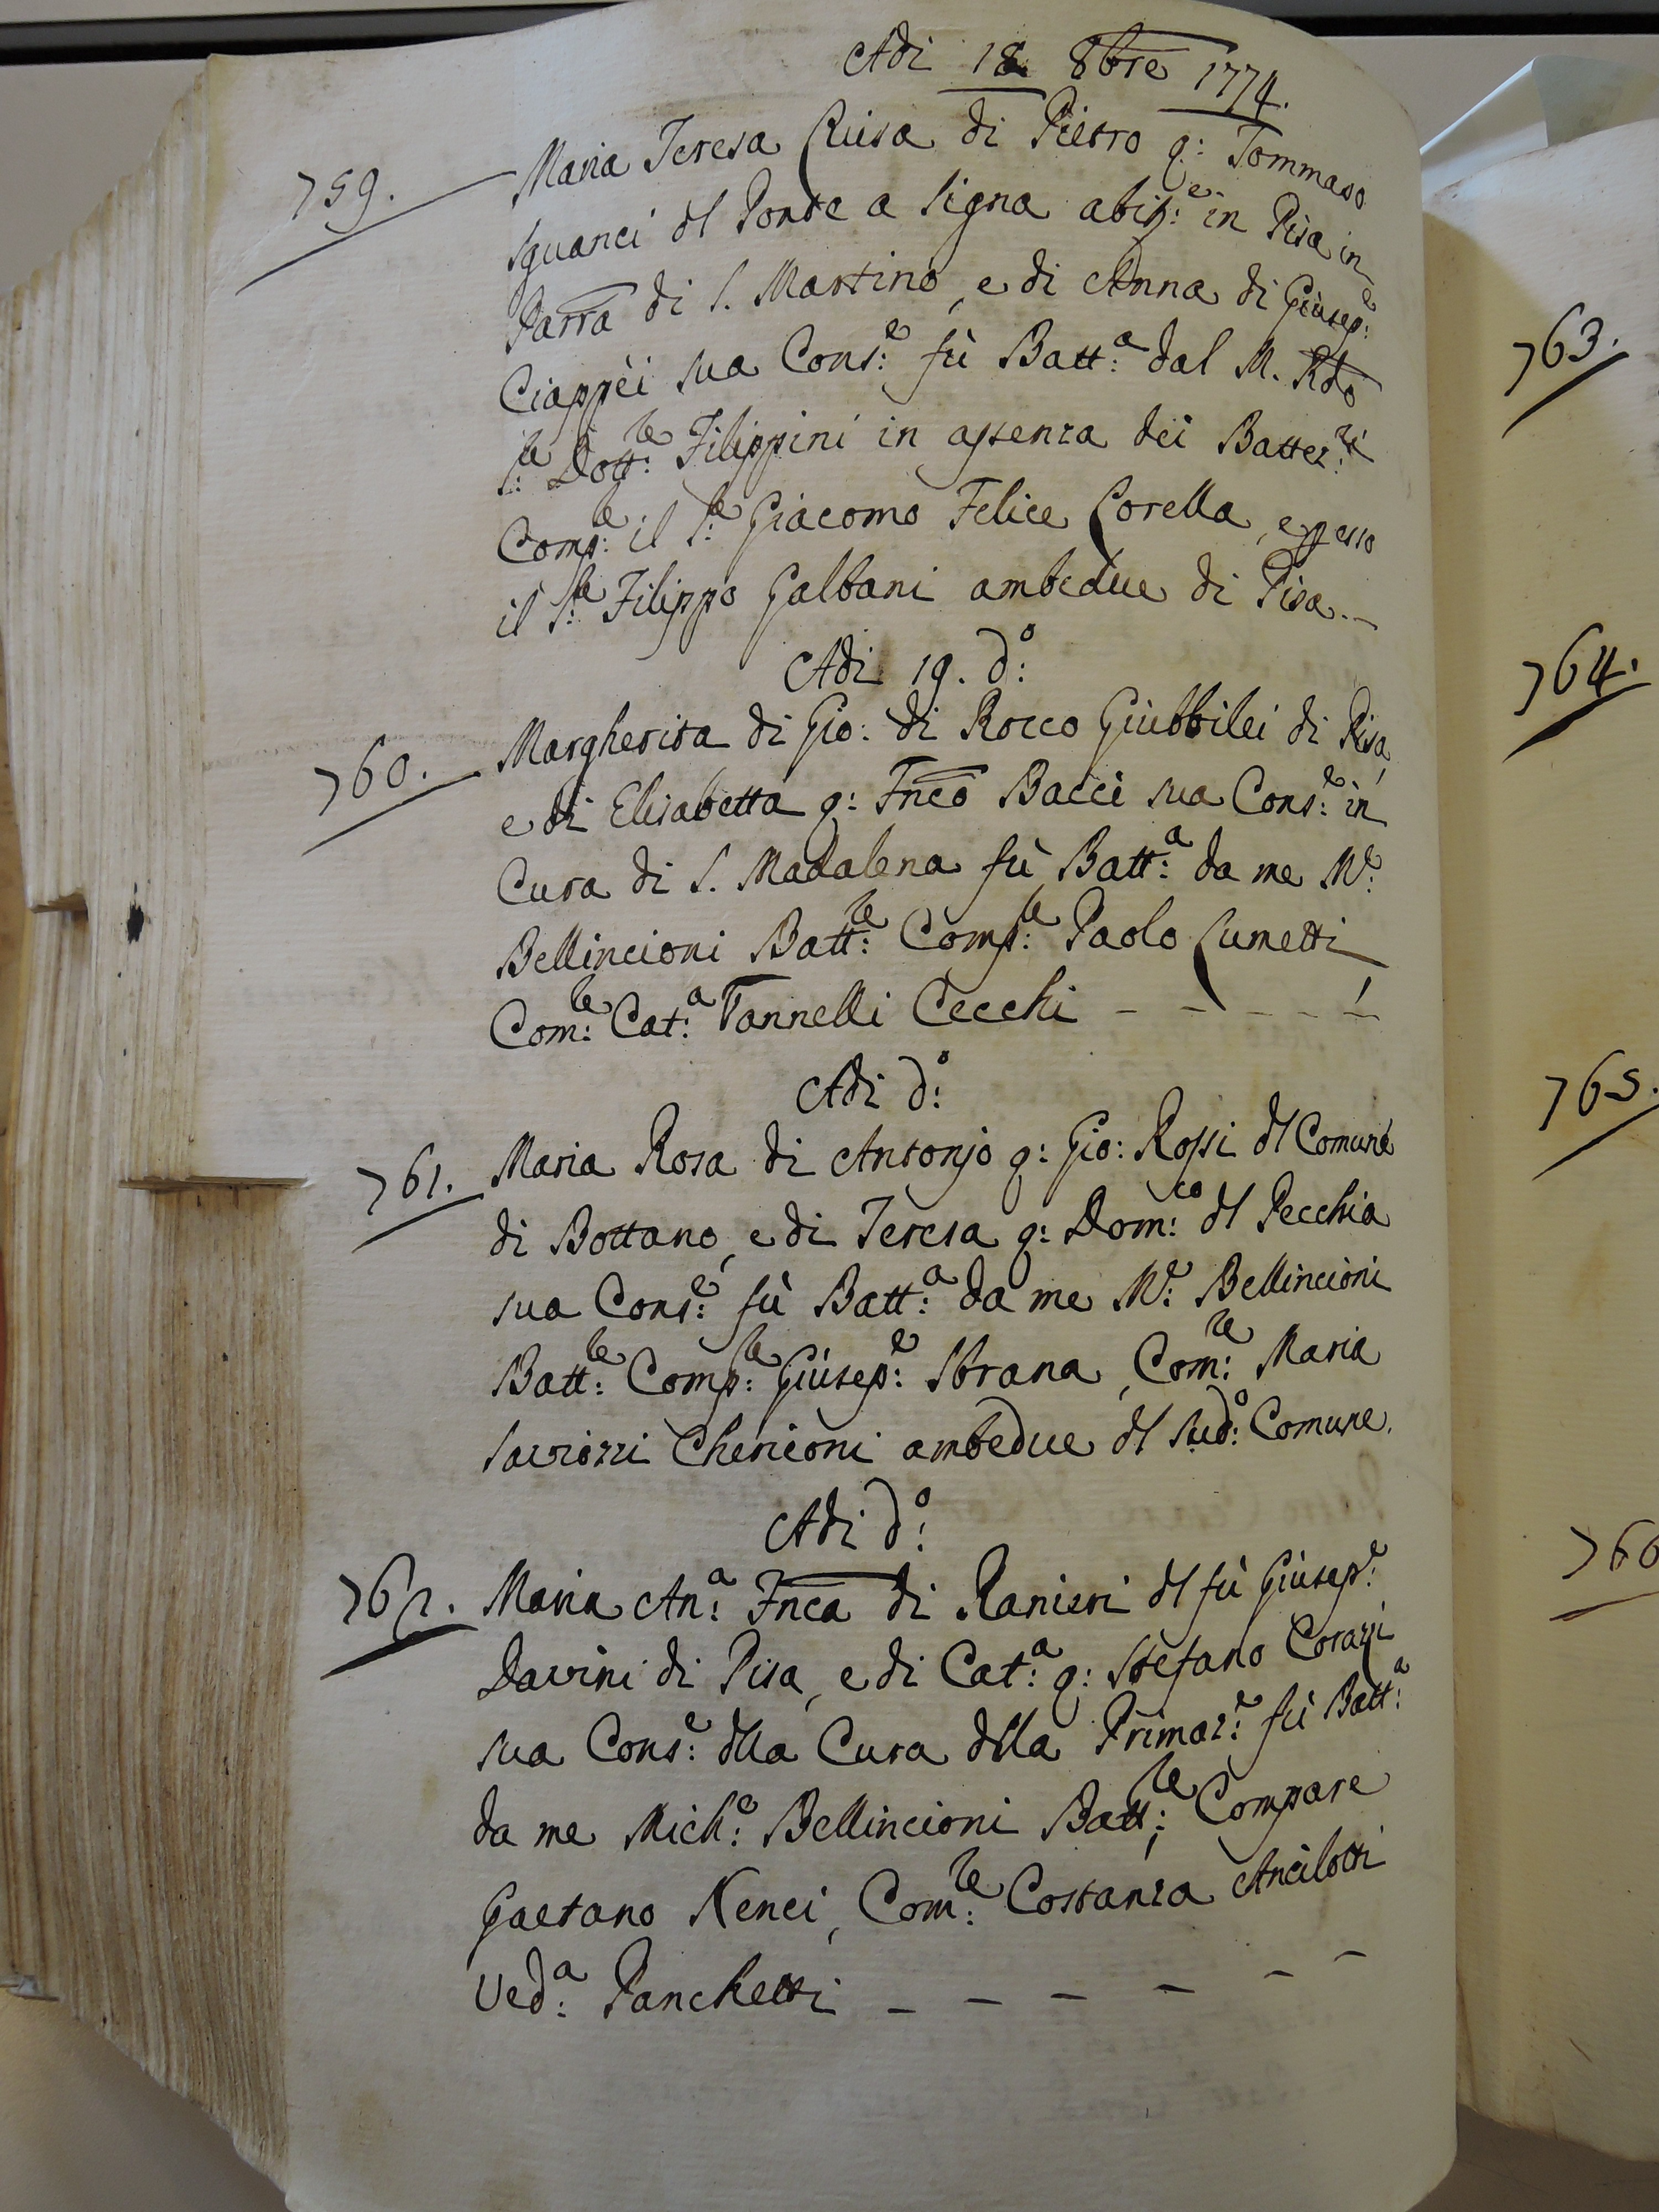 Adi 18 8bre 1774.
759. Maria Teresa Luisa di Pietro q: Tommaso
Sguanci dl Ponte a Signa abit:e in Pisa in
Parra di S. Martino, e di Anna di Giusep:e
Ciappèi sua Cons:e fù Batt:a dal M. Rdo
S:re Dott:re Filippini in assenza dei Battez:ri
Comp:re il S:re Giacomo Felice Corella, e p esso
il S:re Filippo Galbani ambedue di Pisa.-
Adi 19. d:o
760. Margherita di Gio: di Rocco Giubbilei di Pisa,
e di Elisabetta q: Fnco Bacci sua Cons:e in
Cura di S. Madalena fù Batt:a da me M:e
Bellincioni Batt:re Comp:re Paolo Lumetti
Com:re Cat:a Vannelli Cecchi - - - - -
Adi d:o
761. Maria Rosa di Antonjo q: Gio: Rossi dl Comune
di Bottano, e di Teresa q: Dom:co dl Pecchia
sua Cons:e fù Batt:a da me M:e Bellincioni
Batt:re Comp:re Giusep:e Sbrana, Com:re Maria
Saviozzi Chericoni ambedue dl Sud:o Comune.
Adi d:o
762. Maria An:a Fnca di Ranieri dl fù Giusep:e
Davini di Pisa, e di Cat:a q: Stefano Corazzi
sua Cons:e dlla Cura dlla Primaz:e fù Batt:a
da me Mich:e Bellincioni Batt:re; Compare
Gaetano Nenci, Com:re Costanza Ancilotti
Ved:a Panchetti - - - - - -
763.
764.
765.
766